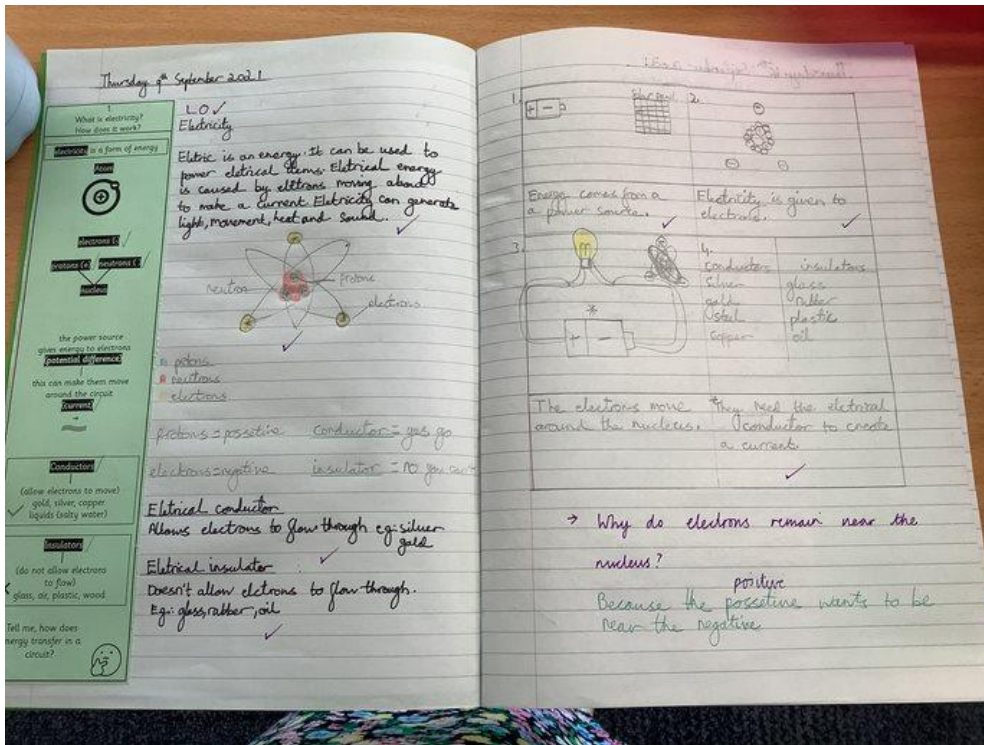 Thursday 9th September 2021
1
What is electricity?
How does it work?
electricity is a form of energy
Atom
electrons (-)
protons (+) neutrons ( )
nucleus
the power source
gives energy to electrons
(potential difference)
this can make them move
around the circuit
(current)
Conductors
(allow electrons to move)
gold, silver, copper
liquids (salty water)
Insulators
(do not allow electrons
to flow)
glass, air, plastic, wood
Tell me, how does
energy transfer in a
circuit?
LO
Eletricity
Eletric is an energy. It can be used to
power eletrical items. Eletrical energy
is caused by elttrons moving about
to make a current. Eletricity can generate
light, movement, heat and sound.
neutron
protons
electrons
protons
neutrons
electrons
protons = possetive conductor = yes, go
electrons = negative insulator = no you can't
Eletrical conductor
Allows electrons to flow through eg: silver
gold
Eletrical insulator
Doesn't allow elctrons to flow through.
Eg: glass, rubber, oil
1.
+ -
Solar panel
2.
Energy comes from a
a power source.
Electricity is given to
electrons.
3.
*
+ -
4.
conductors insulators
Silver glass
gold rubber
Steel plastic
copper oil
The electrons move
around the nucleus.
*They need the eletrical
conductor to create
a current.
→ Why do electrons remain near the
nucleus?
positive
Because the possetive wants to be
near the negative